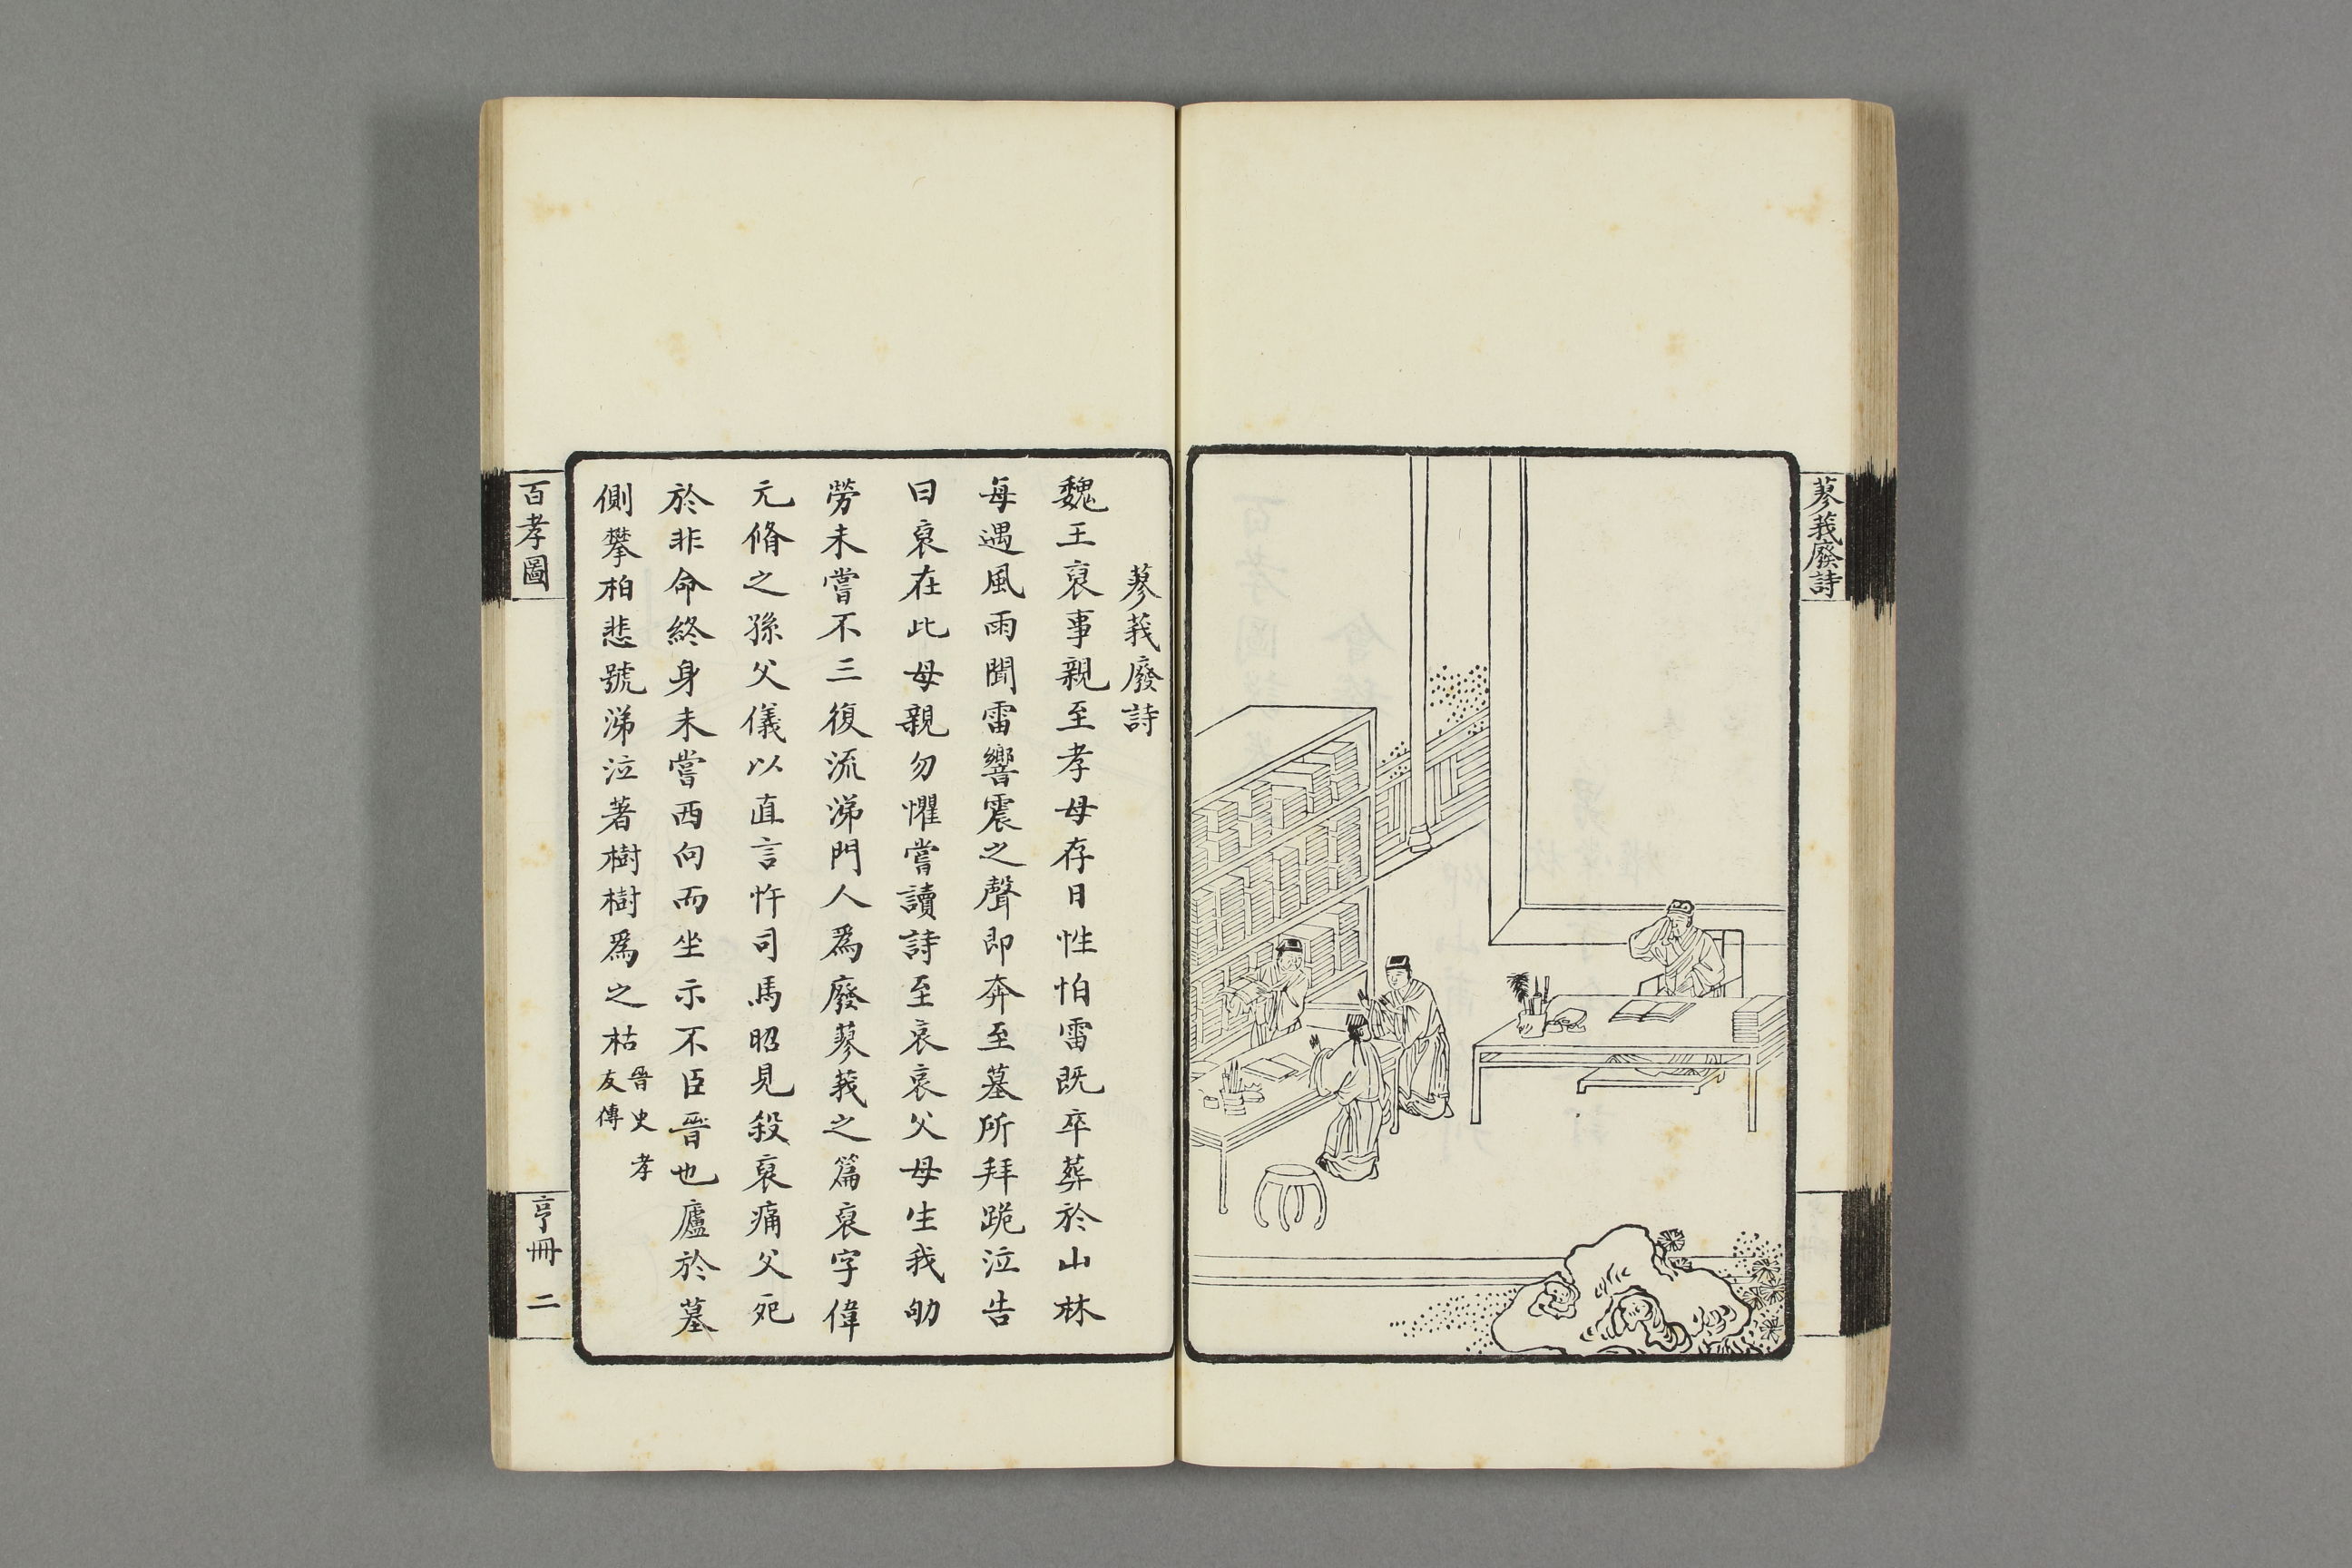 蓼莪廢詩
蓼莪廢詩
魏王裒事親至孝母存日性怕雷既卒葬於山林
每遇風雨聞雷響震之聲即奔至墓所拜跪泣告
曰裒在此母親勿懼嘗讀詩至哀哀父母生我劬
勞未嘗不三復流涕門人爲廢蓼莪之篇裒字偉
元脩之孫父儀以直言忤司馬昭見殺裒痛父死
於非命終身未嘗西向而坐示不臣晉也廬於墓
側攀柏悲號涕泣著樹樹爲之枯
晉史孝
友傳
百孝圖
亨冊 二